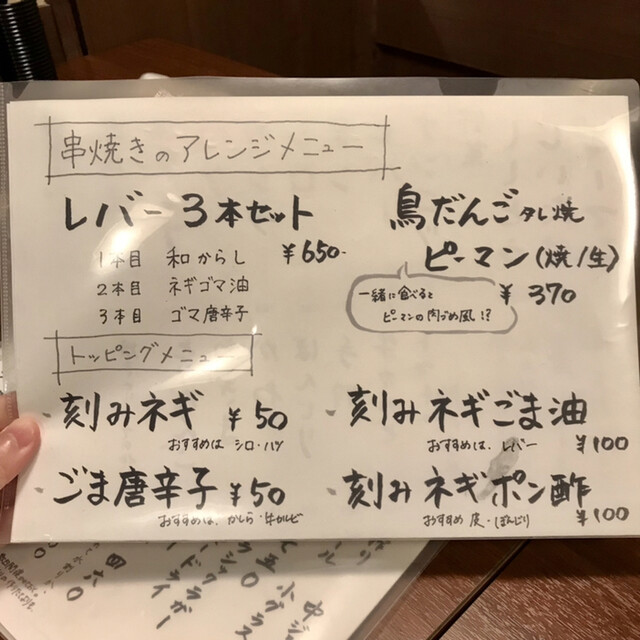 串焼きのアレンジメニュー
レバー3本セット
¥650-
1本目 和からし
2本目 ネギゴマ油
3本目 ゴマ唐辛子
鳥だんごタレ焼
ピーマン(焼/生)
¥370
一緒に食べると
ピーマンの肉づめ風!?
トッピングメニュー
刻みネギ ¥50
おすすめは シロ・ハツ
ごま唐辛子 ¥50
おすすめは、かしら・牛カルビ
刻みネギごま油
おすすめは、レバー ¥100
刻みネギポン酢
おすすめ 皮・ぼんじり ¥100